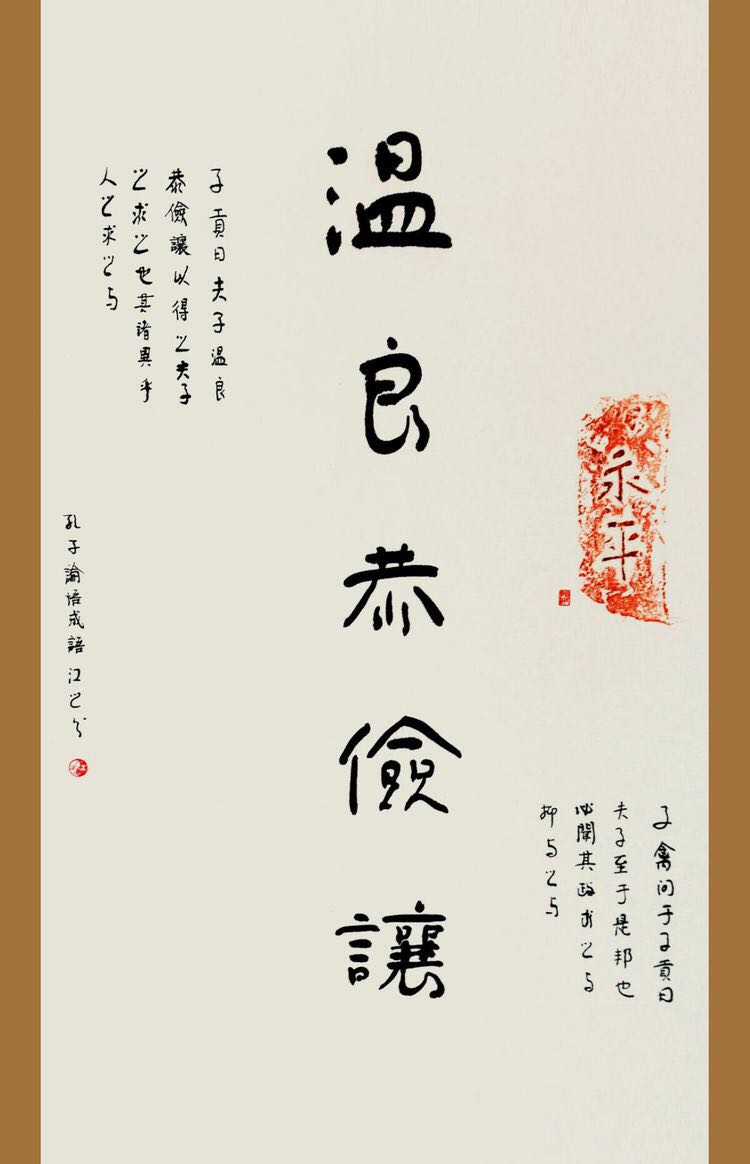 永平
子禽问于子貢曰
夫子至于是邦也
必聞其政求之与
抑与之与
温良恭儉讓
子貢曰夫子温良
恭儉讓以得之夫子
之求之也其諸異乎
人之求之与
孔子論語成語 江之